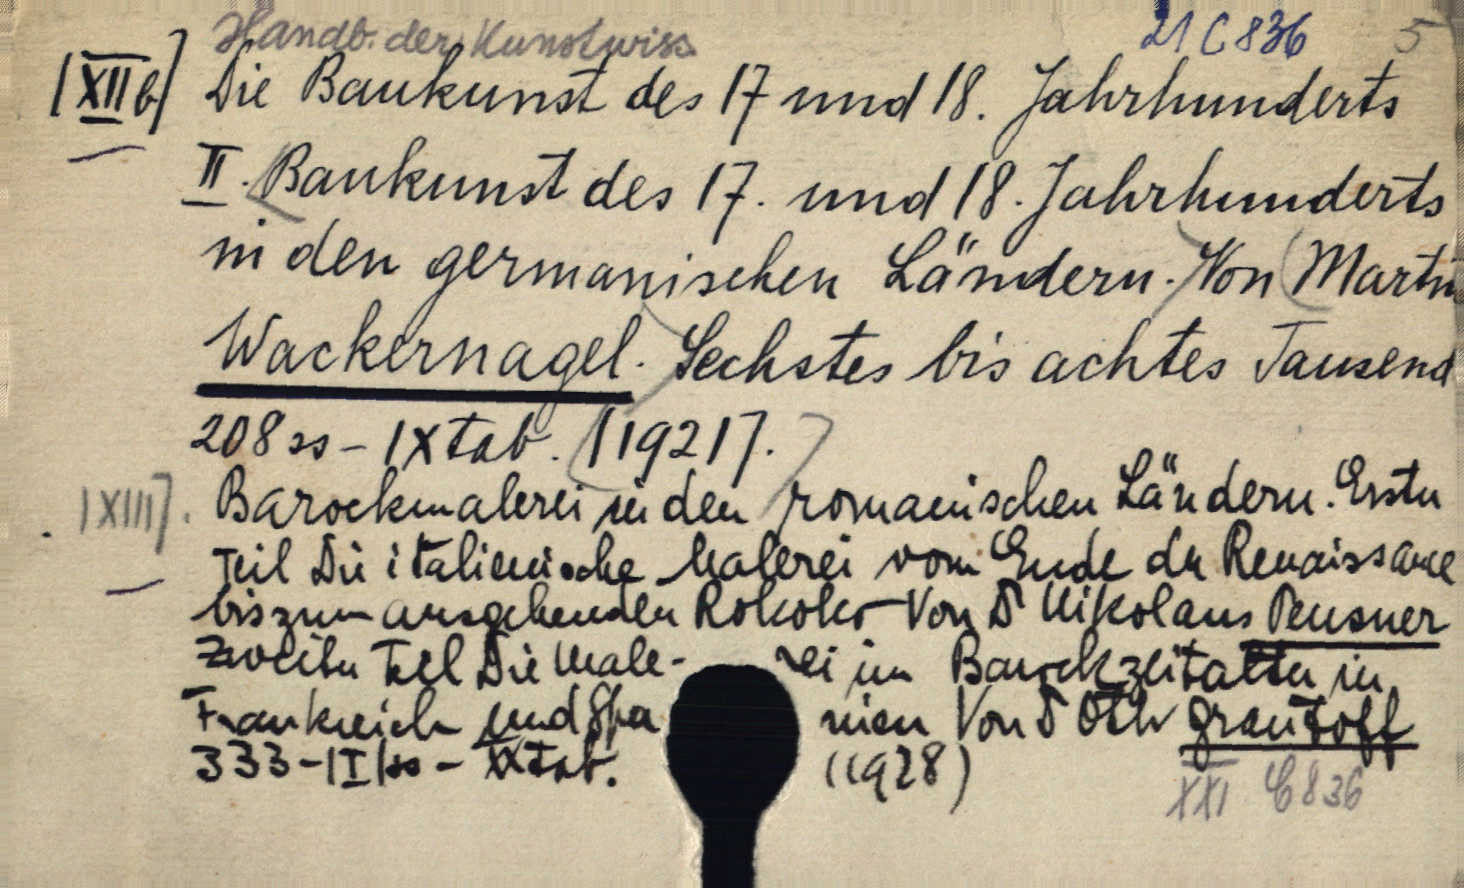 Handb. der Kunstwiss. 21 C 836 5
[XII b] Die Baukunst des 17 und 18. Jahrhunderts
II. Baukunst des 17. und 18. Jahrhunderts
in den germanischen Ländern. Von Martin
Wackernagel. Sechstes bis achtes Tausend
208 ss - IX tab. [1921].
[XIII]. Barockmalerei in den romanischen Ländern. Erster
Teil Die italienische Malerei vom Ende der Renaissance
bis zum ausgehenden Rokoko - Von D Nikolaus Pevsner
Zweiter Teil Die Male- rei im Barockzeitalter in
Frankreich und Spa nien Von D Otto Grautoff
333-|I| ss - XX tab. (1928)
XXI C 836